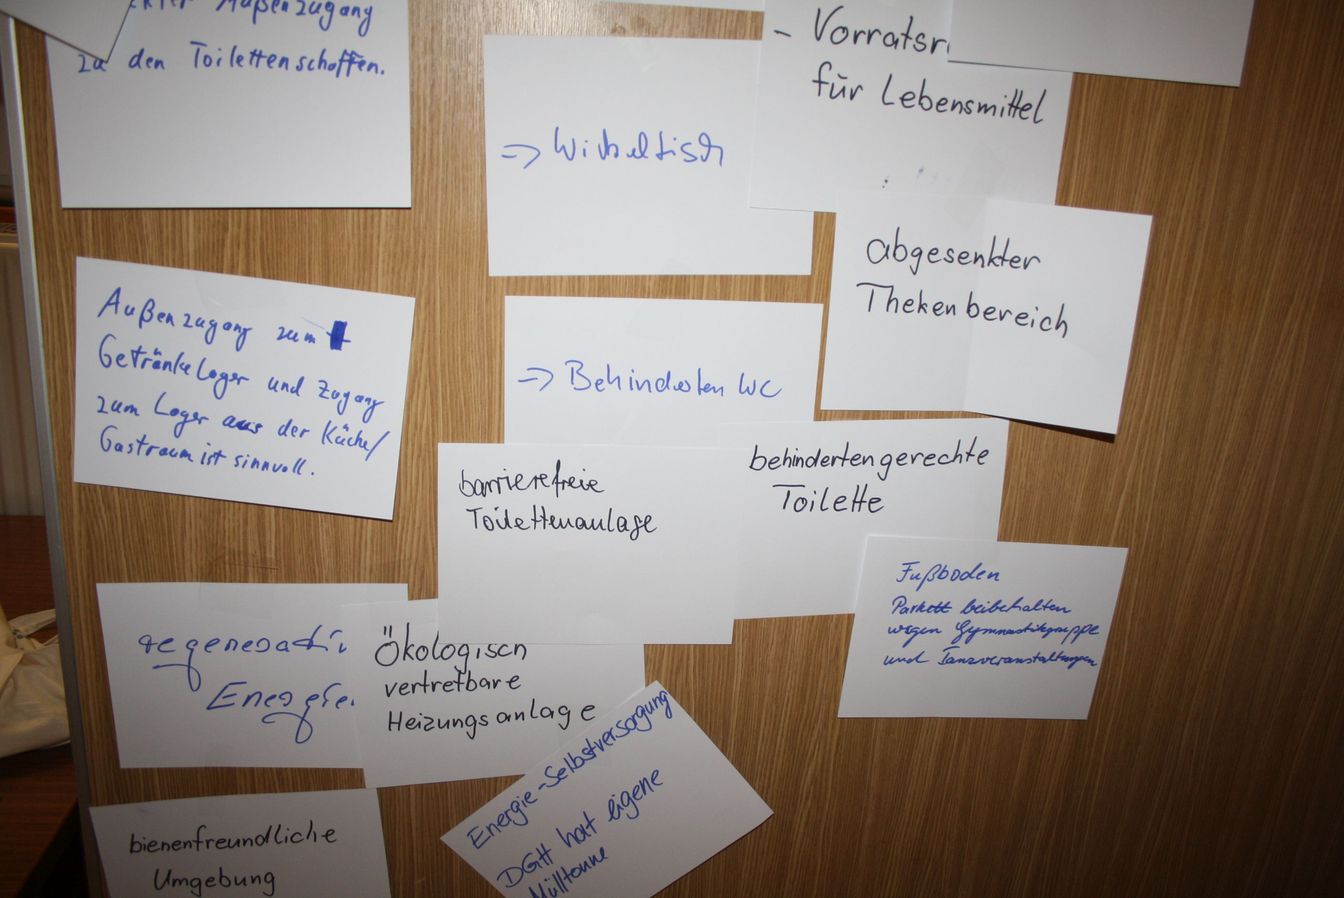 Außenzugang
zu den Toiletten schaffen.
⇒ Wickeltisch
- Vorratsr
für Lebensmittel
abgesenkter
Thekenbereich
Außenzugang zum
Getränkelager und Zugang
zum Lager aus der Küche/
Gastraum ist sinnvoll.
⇒ Behinderten WC
barrierefreie
Toilettenanlage
behindertengerechte
Toilette
Fußboden
Parkett beibehalten
wegen Gymnastikgruppe
und Tanzveranstaltungen
regenerativ
Energie
Ökologisch
vertretbare
Heizungsanlage
Energie-Selbstversorgung
DGH hat eigene
Mülltonne
bienenfreundliche
Umgebung